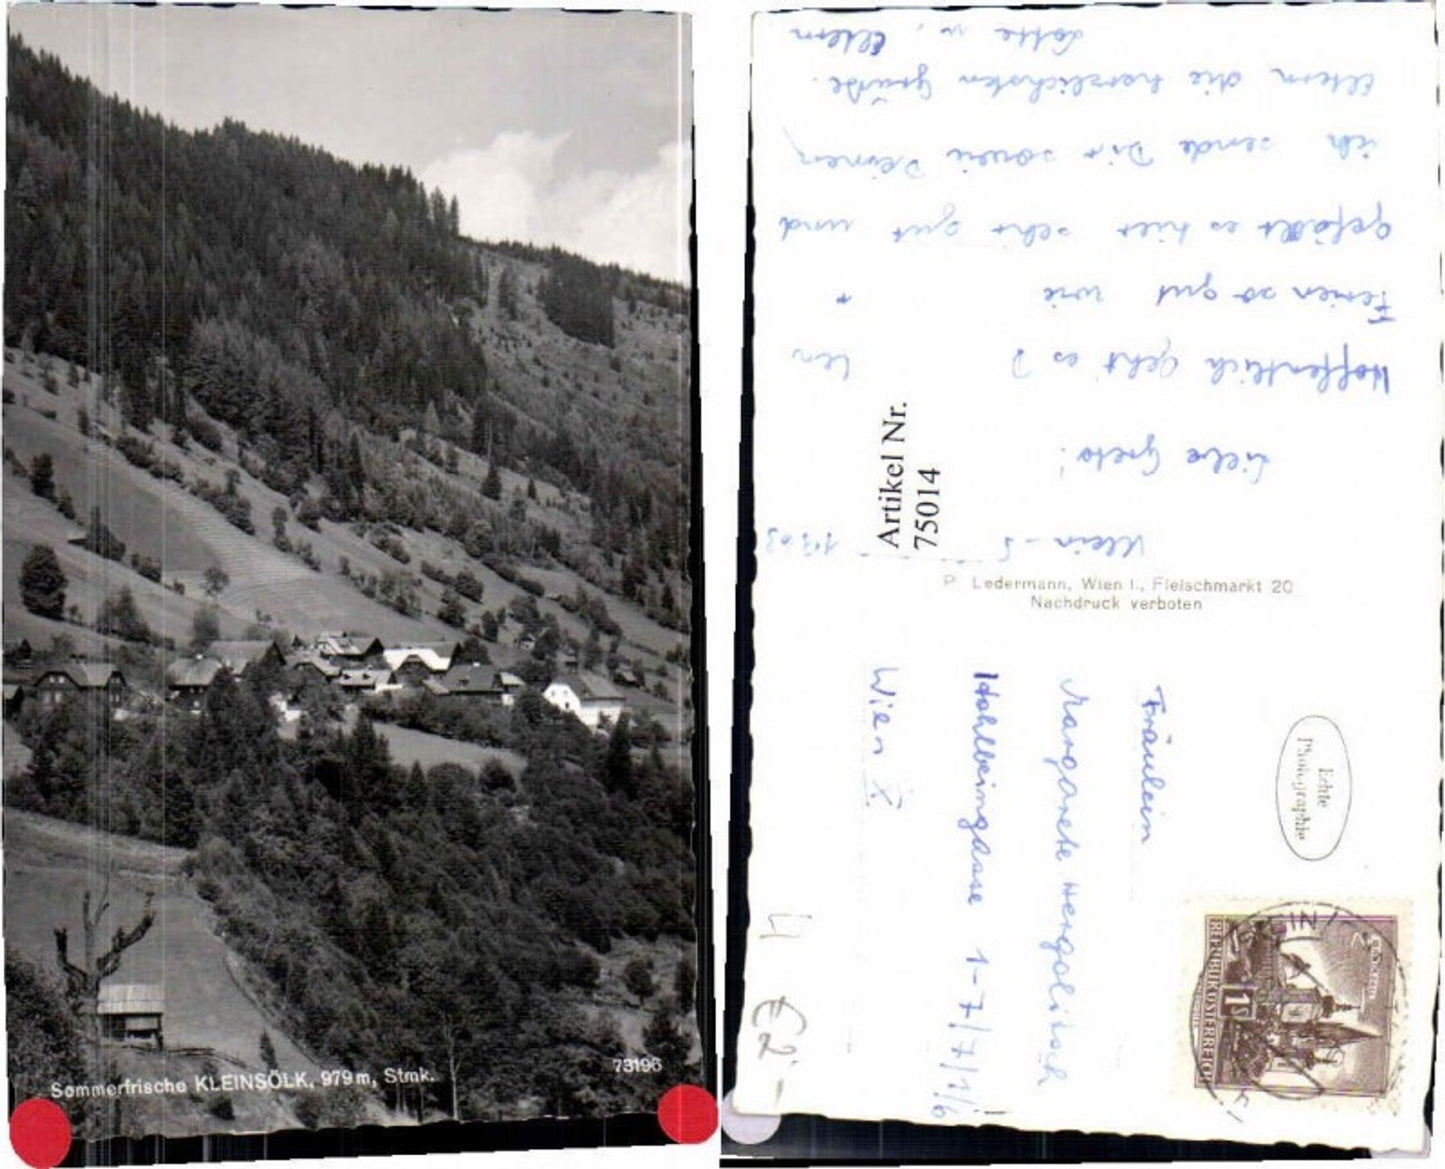 Sommerfrische KLEINSÖLK, 979 m, Stmk.
73196
Klein - S
Liebe Greta!
Hoffentlich geht es
Ferien so gut wie
gefällt es hier sehr gut und
ich sende Dir sowie Deinen
Eltern die herzlichsten Grüße.
Lotte u. Eltern
Artikel Nr.
75014
P. Ledermann, Wien I., Fleischmarkt 20
Nachdruck verboten
Echte
Photographie
Fräulein
Margarete Hergolitsch
Hohlbeingasse 1-7/7/1/6
Wien X.
REPUBLIK ÖSTERREICH
1S